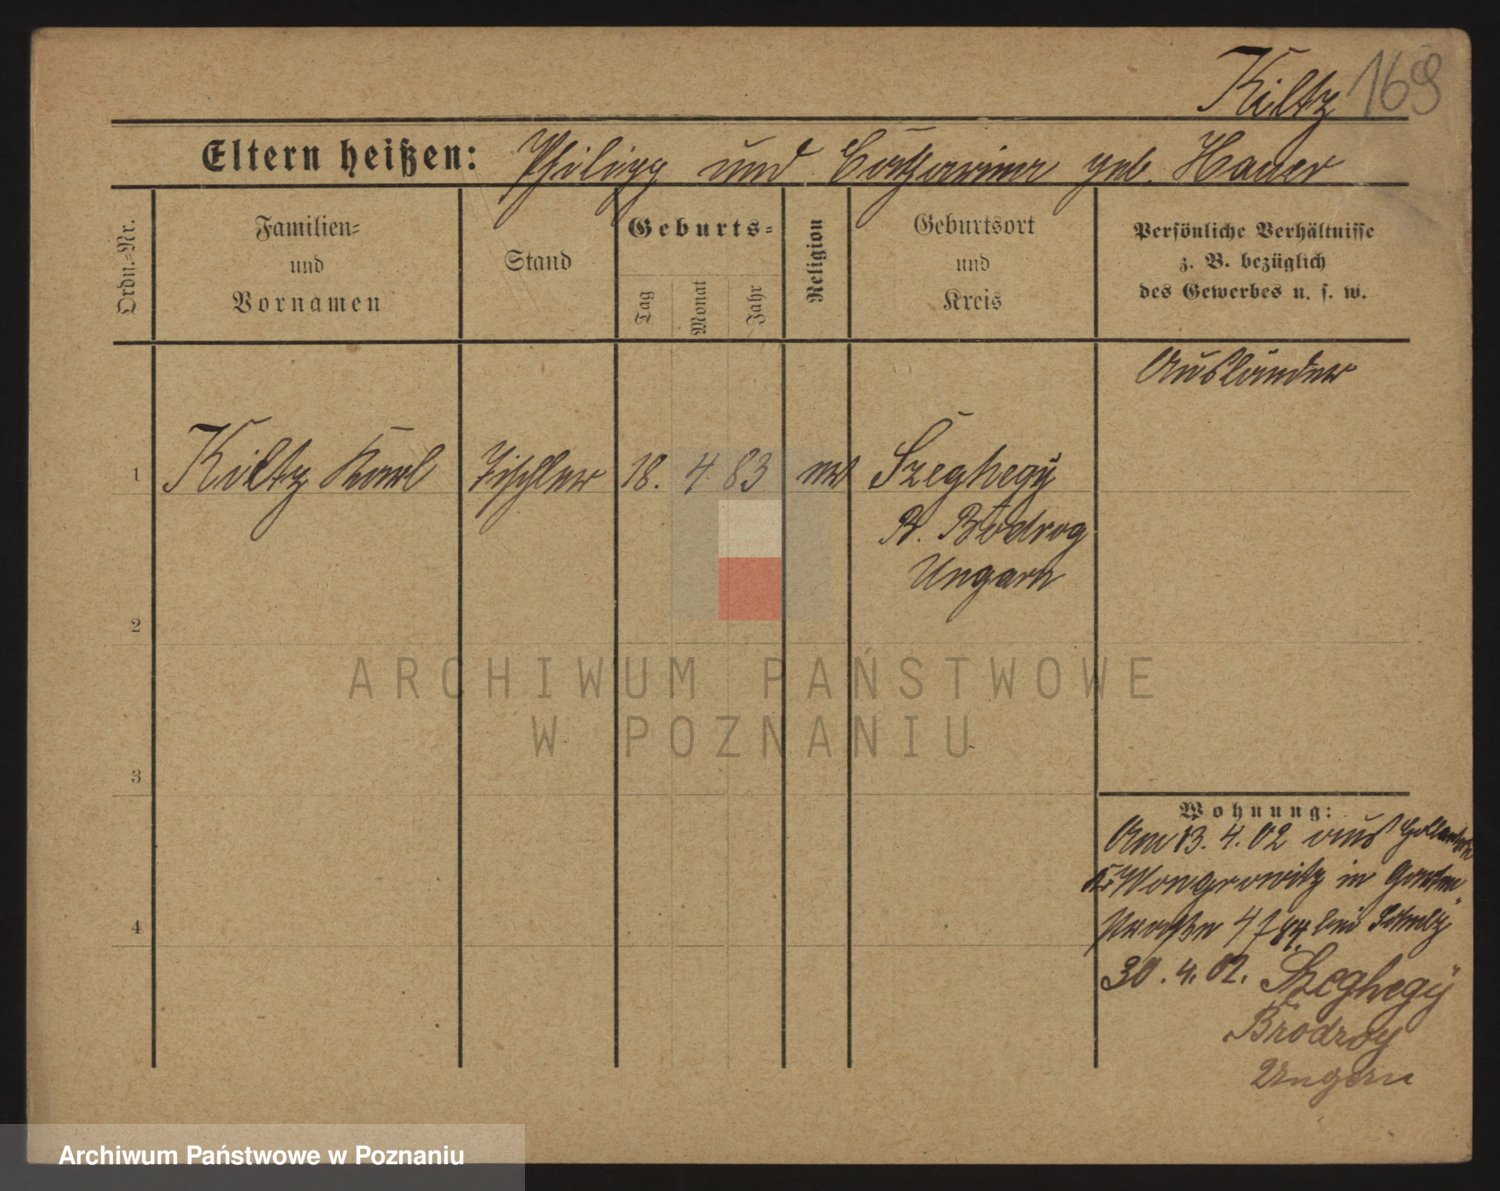 Kiltz 169
Eltern heißen: Philipp und Catharina geb. Hauer
Ordn.-Nr.
Familien-
und
Vornamen
Stand
Geburts-
Tag
Monat
Jahr
Religion
Geburtsort
und
Kreis
Persönliche Verhältnisse
z. B. bezüglich
des Gewerbes u. s. w.
Ausländer
1 Kiltz Karl Tischler 18. 4 83 ev Szeghegy
B. Bodrog
Ungarn
2
3
4
Wohnung:
Am 13. 4. 02 aus Gollantsch
Kr. Wongrowitz in Garten
straße 4 bei Schulz
30. 4. 02. Szeghegy
Brodroy
Ungarn
ARCHIWUM PAŃSTWOWE
W POZNANIU
Archiwum Państwowe w Poznaniu